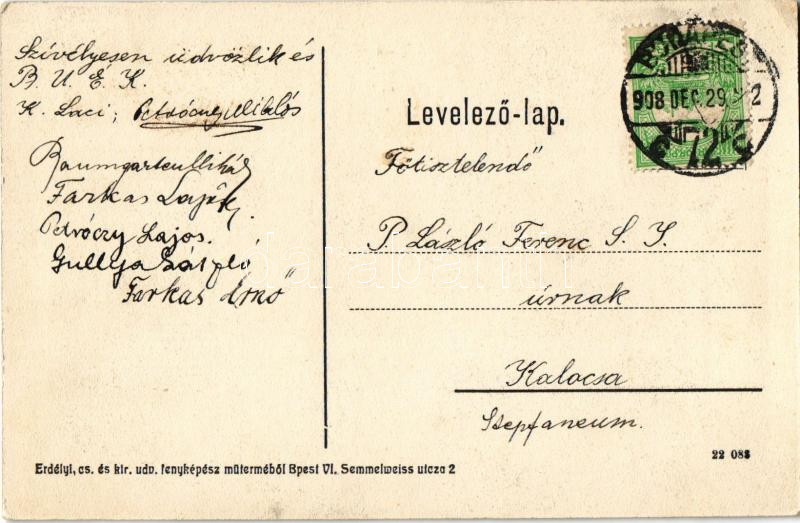 Szívélyesen üdvözlik és
B. U. É. K.
K. Laci, Petróczy Miklós
Baumgarten Mihály
Farkas Lajos
Petróczy Lajos.
Gullya
Farkas Ernő
Levelező-lap.
Főtisztelendő
P. László Ferenc S. I.
úrnak
Kalocsa
Stepfaneum.
BUDAPEST
908 DEC. 29.
72
Erdélyi, cs. és kir. udv. fényképész műterméből Bpest VI. Semmelweiss utcza 2
22 083